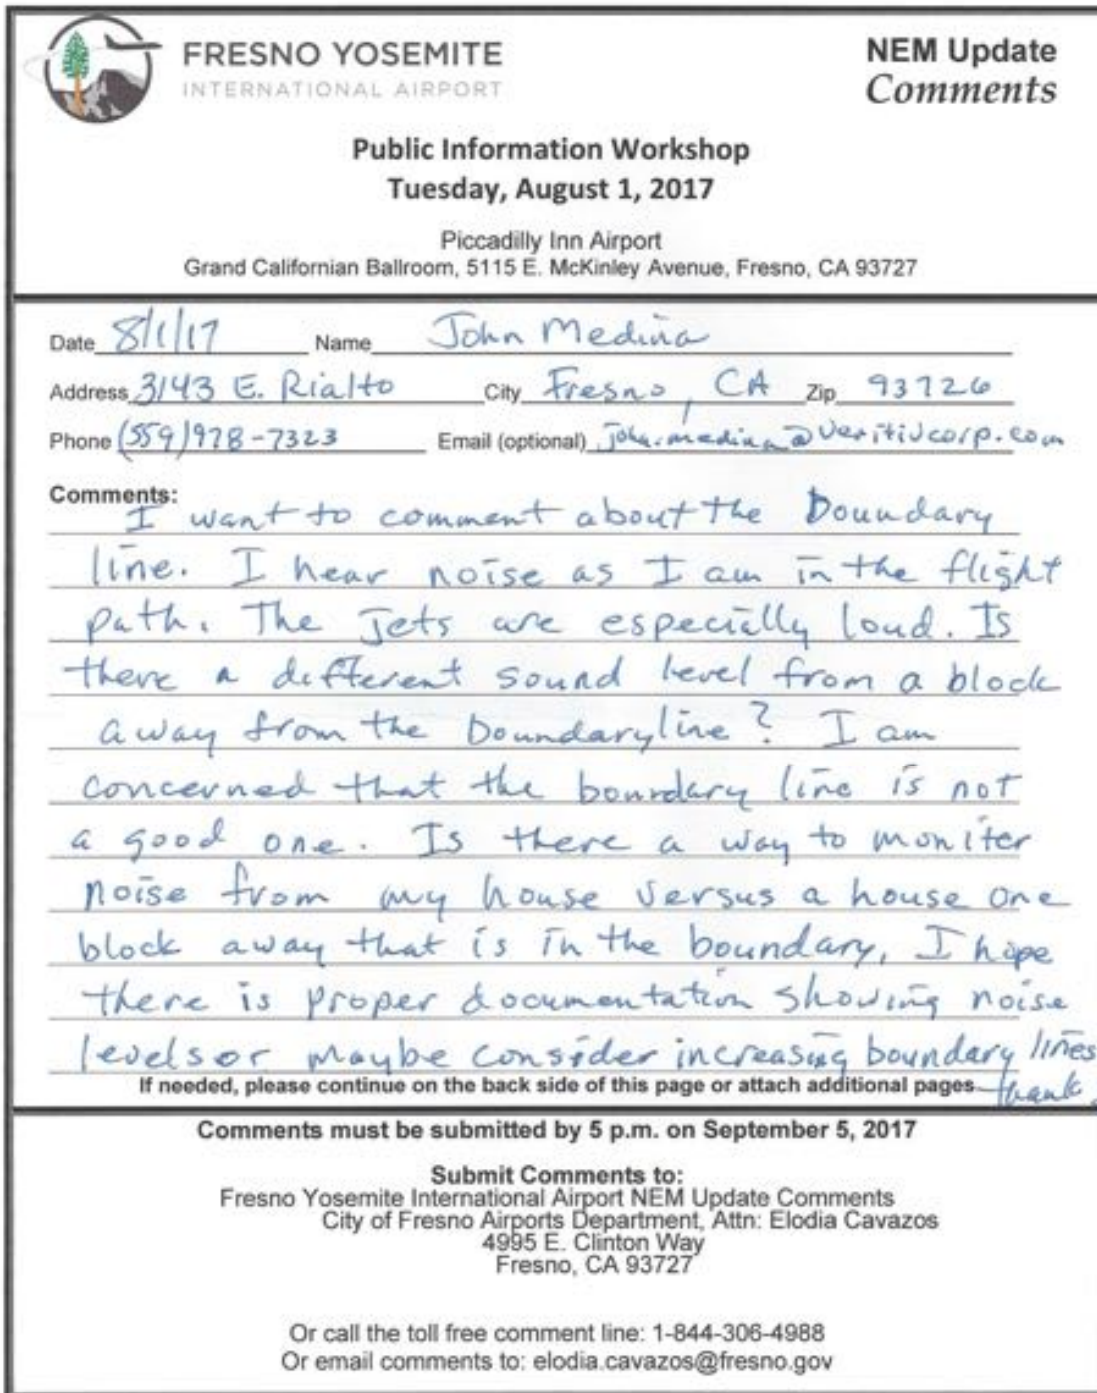 FRESNO YOSEMITE
INTERNATIONAL AIRPORT
NEM Update
Comments
Public Information Workshop
Tuesday, August 1, 2017
Piccadilly Inn Airport
Grand Californian Ballroom, 5115 E. McKinley Avenue, Fresno, CA 93727
Date 8/1/17 Name John Medina
Address 3143 E. Rialto City Fresno, CA Zip 93726
Phone (559)978-7323 Email (optional) john.medina@veritivcorp.com
Comments:
I want to comment about the Boundary
line. I hear noise as I am in the flight
path. The Jets are especially loud. Is
there a different sound level from a block
away from the boundaryline? I am
concerned that the boundary line is not
a good one. Is there a way to moniter
noise from my house versus a house one
block away that is in the boundary, I hope
there is proper documentation showing noise
levels or maybe consider increasing boundary lines
If needed, please continue on the back side of this page or attach additional pages
thank
Comments must be submitted by 5 p.m. on September 5, 2017
Submit Comments to:
Fresno Yosemite International Airport NEM Update Comments
City of Fresno Airports Department, Attn: Elodia Cavazos
4995 E. Clinton Way
Fresno, CA 93727
Or call the toll free comment line: 1-844-306-4988
Or email comments to: elodia.cavazos@fresno.gov